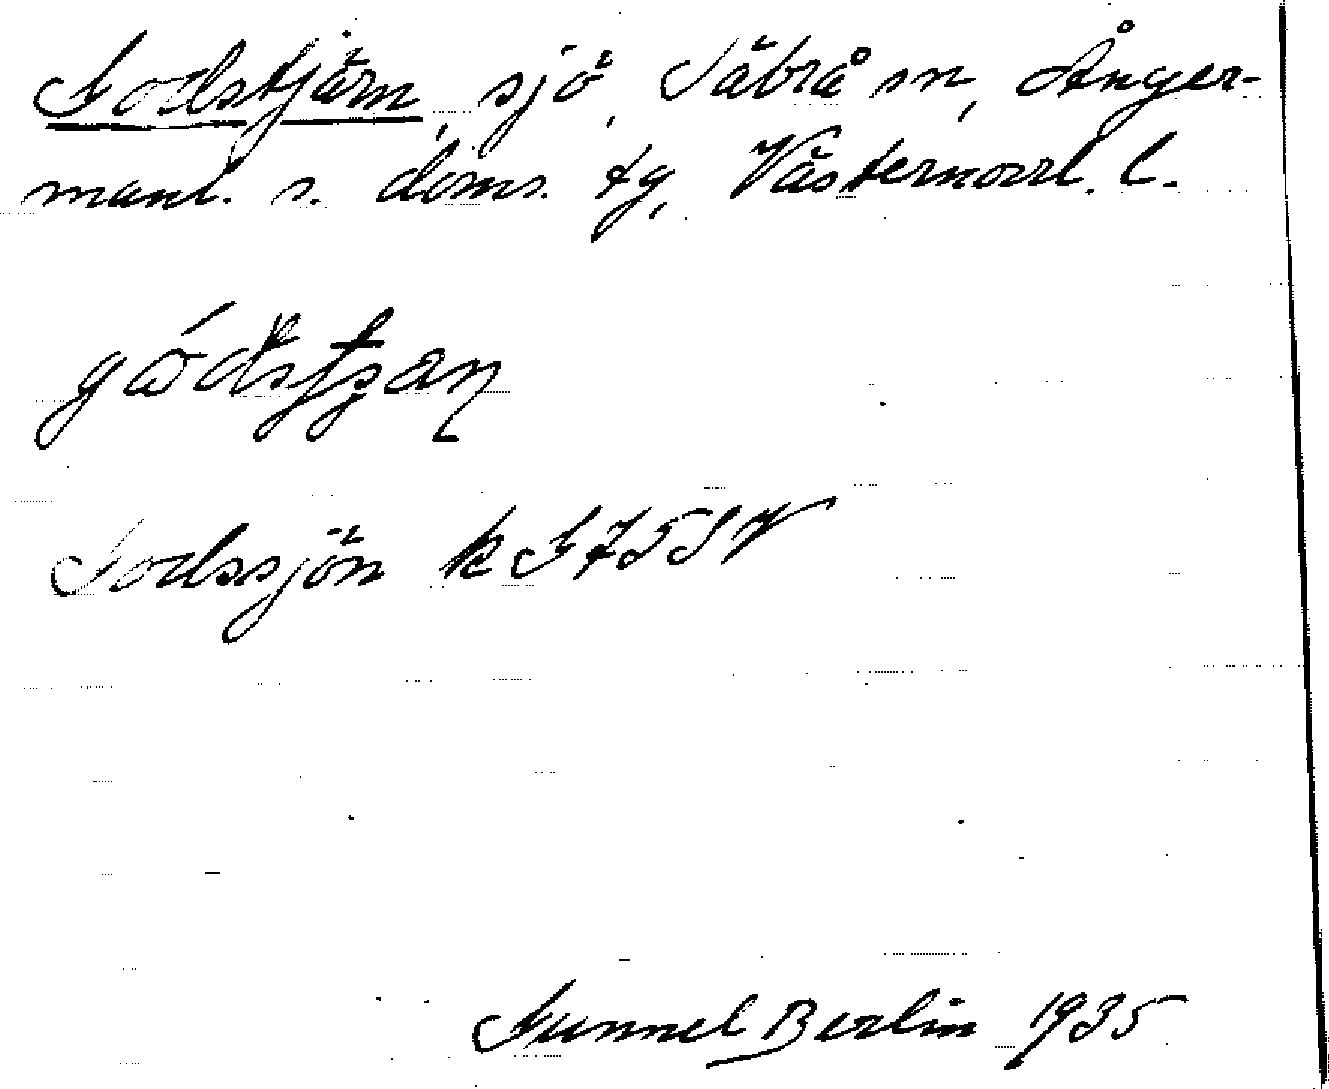 Godstjärn, sjö, Säbrå sn, Ånger-
manl. s. doms. tg, Västernorrl. l.
Godssjön k G75SV
Gunnel Berlin 1935